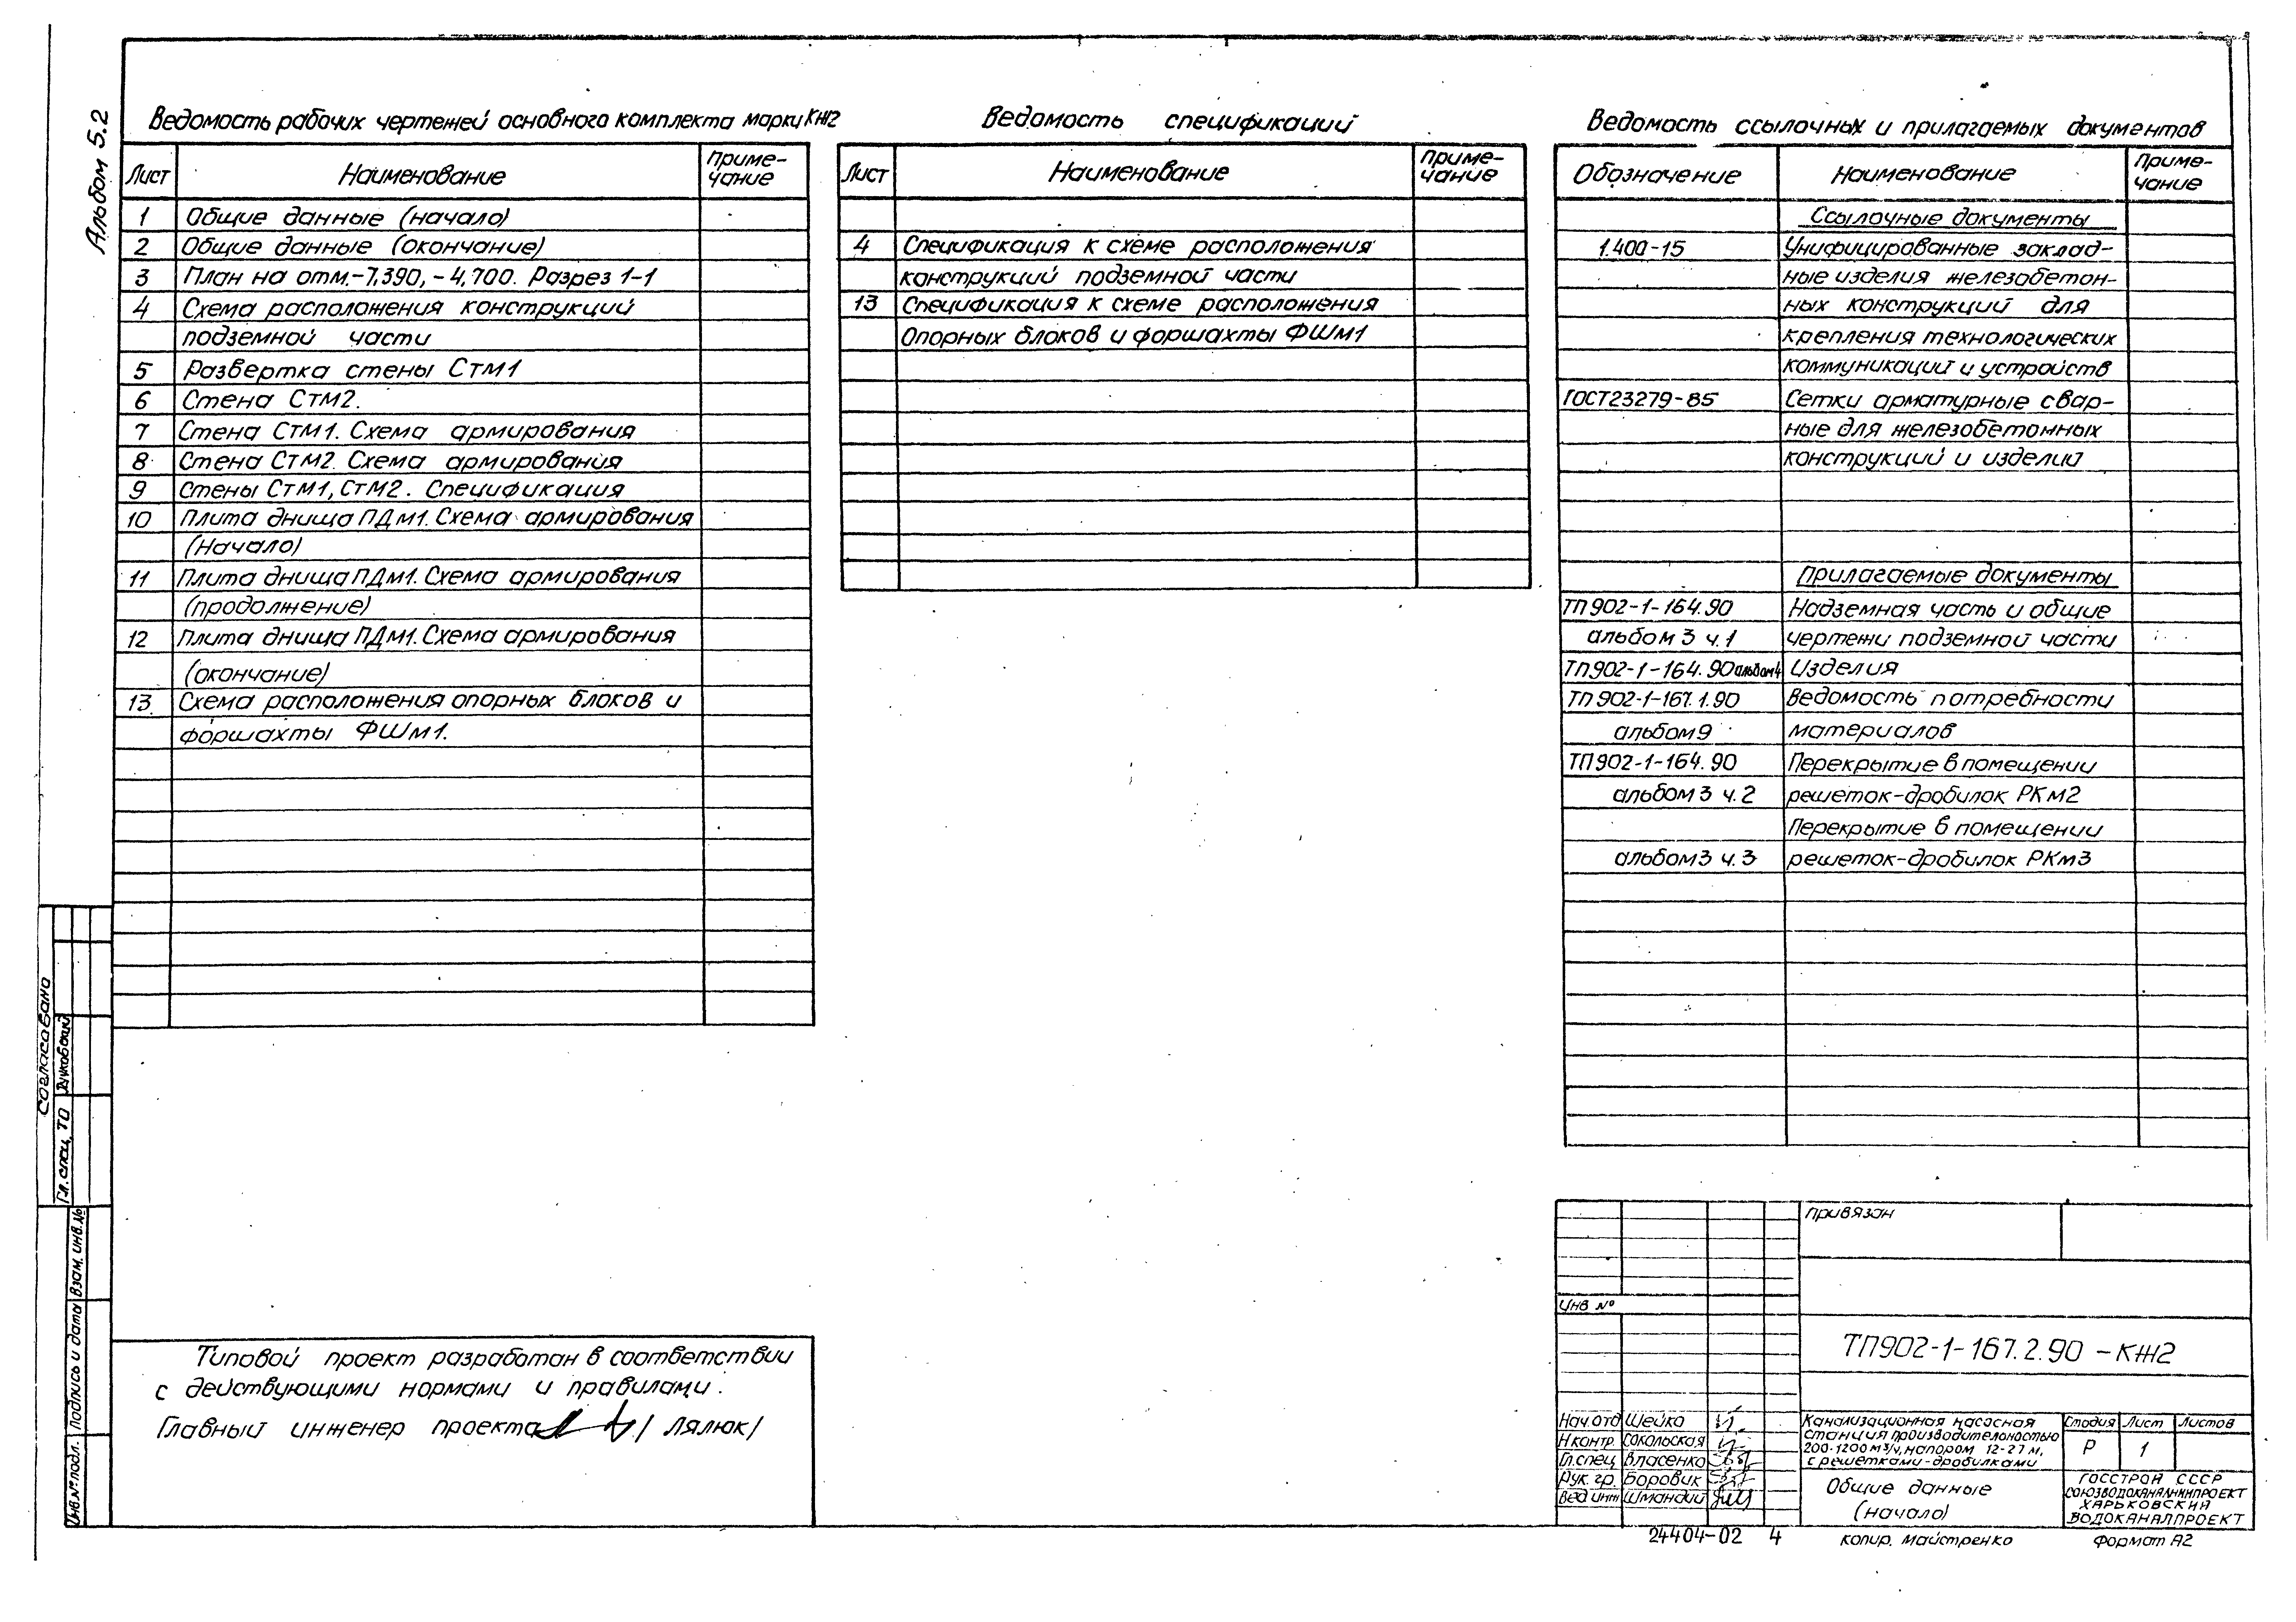 Альбом 5.2
Ведомость рабочих чертежей основного комплекта марки КЖ2
Лист Наименование Приме-
чание
1 Общие данные (начало)
2 Общие данные (окончание)
3 План на отм.-7,390, -4,700. Разрез 1-1
4 Схема расположения конструкций
подземной части
5 Развертка стены Стм1
6 Стена Стм2.
7 Стена Стм1. Схема армирования
8 Стена Стм2. Схема армирования
9 Стены Стм1, Стм2. Спецификация
10 Плита днища ПДм1. Схема армирования
(Начало)
11 Плита днища ПДм1. Схема армирования
(продолжение)
12 Плита днища ПДм1. Схема армирования
(окончание)
13 Схема расположения опорных блоков и
форшахты ФШм1.
Ведомость спецификаций
Лист Наименование Приме-
чание
4 Спецификация к схеме расположения
конструкций подземной части
13 Спецификация к схеме расположения
Опорных блоков и форшахты ФШм1
Ведомость ссылочных и прилагаемых документов
Обозначение Наименование Приме-
чание
Ссылочные документы
1.400-15 Унифицированные заклад-
ные изделия железобетон-
ных конструкций для
крепления технологических
коммуникаций и устройств
ГОСТ23279-85 Сетки арматурные свар-
ные для железобетонных
конструкций и изделий
Прилагаемые документы
ТП902-1-164.90 Надземная часть и общие
альбом 3 ч.1 чертежи подземной части
ТП902-1-164.90 альбом4 Изделия
ТП902-1-167.1.90 Ведомость потребности
альбом9 материалов
ТП902-1-164.90 Перекрытие в помещении
альбом3 ч.2 решеток-дробилок РКм2
Перекрытие в помещении
альбом3 ч.3 решеток-дробилок РКм3
Согласовано
Гл. спец. ТО
Инв.№подл. Подпись и дата Взам. инв.№
Типовой проект разработан в соответствии
с действующими нормами и правилами.
Главный инженер проекта /Лялюк/
Привязан
Инв №
ТП902-1-167.2.90 -КЖ2
Нач.отд Шейко
Н контр. Сокольская
Гл.спец Власенко
Рук. гр. Боровик
Вед инж Шмандий
Канализационная насосная
станция производительностью
200-1200м3/ч, напором 12-27м,
с решетками-дробилками
Стадия Лист Листов
Р 1
Общие данные
(начало)
ГОССТРОЙ СССР
СОЮЗВОДОКАНАЛНИИПРОЕКТ
ХАРЬКОВСКИЙ
ВОДОКАНАЛПРОЕКТ
24404-02 4 копир. Майстренко Формат А2